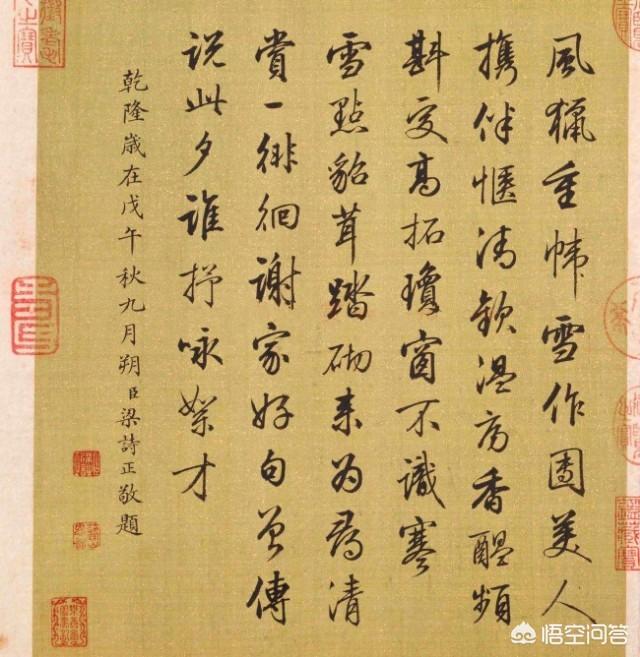 風獵重幃雪作團美人
携伴愜清歡温房香醖頻
斟高拓瓊窗不識寒
雪點貂茸踏砌来为尋清
賞一徘徊謝家好句曾傳
说此夕誰抒咏絮才
乾隆歲在戊午秋九月朔臣梁詩正敬題
悟空问答